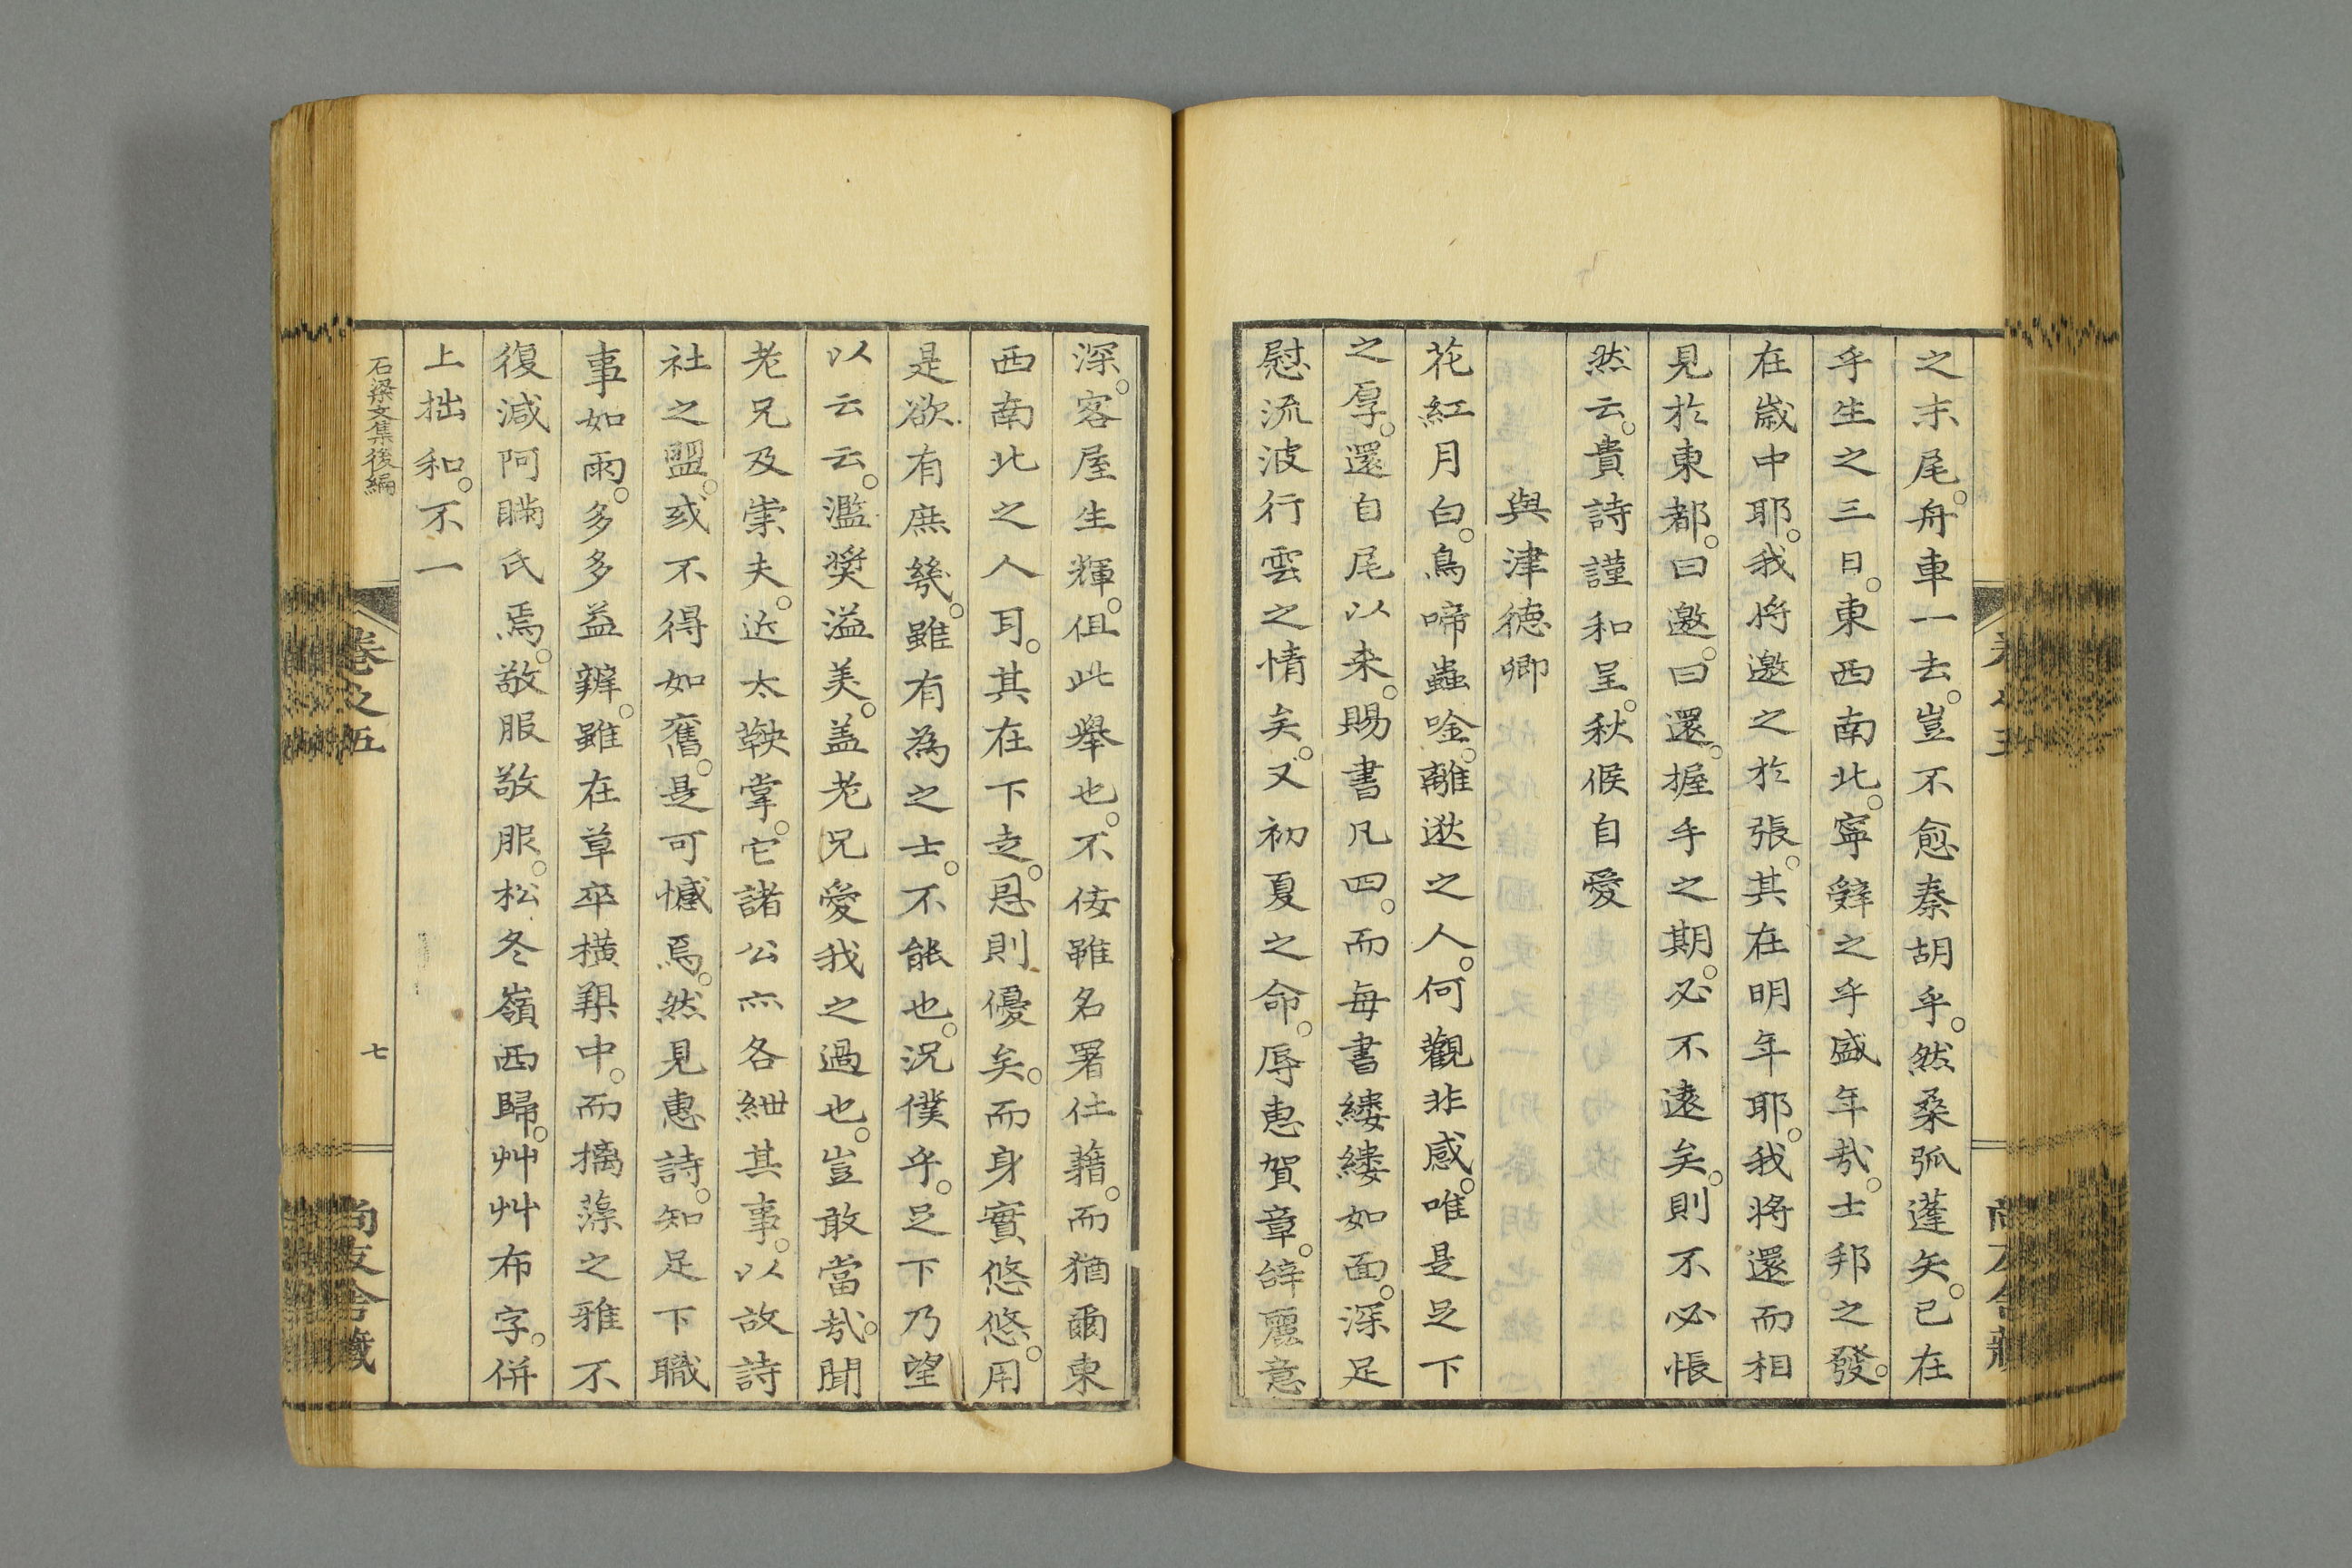 之末尾。舟車一去。豈不愈秦胡乎。然桑弧蓬矢。已在
乎生之三日。東西南北。寧辭之乎盛年哉。士邦之發。
在歲中耶。我將邀之於張。其在明年耶。我將還而相
見於東都。曰邀。曰還。握手之期。必不遠矣。則不必悵
然云。貴詩謹和呈。秋候自愛
與津德卿
花紅月白。鳥啼蟲唫。離逖之人。何觀非感。唯是足下
之厚。還自尾以来。賜書凡四。而每書縷縷如面。深足
慰流波行雲之情矣。又初夏之命。辱惠賀章。辞麗意
深。客屋生輝。但此舉也。不佞雖名署仕籍。而猶爾東
西南北之人耳。其在下走。恩則優矣。而身實悠悠。用
是欲有庶幾。雖有為之士。不能也。況僕乎。足下乃望
以云云。濫奨溢美。盖老兄愛我之過也。豈敢當哉。聞
老兄及崇夫。近太鞅掌。它諸公亦各紲其事。以故詩
社之盟。或不得如舊。是可憾焉。然見惠詩。知足下職
事如雨。多多益辨。雖在草卒橫槊中。而摛藻之雅不
復減阿瞞氏焉。敬服敬服。松冬嶺西歸。艸艸布字。併
上拙和。不一
石梁文集後編
卷之五
七
尚友舍藏